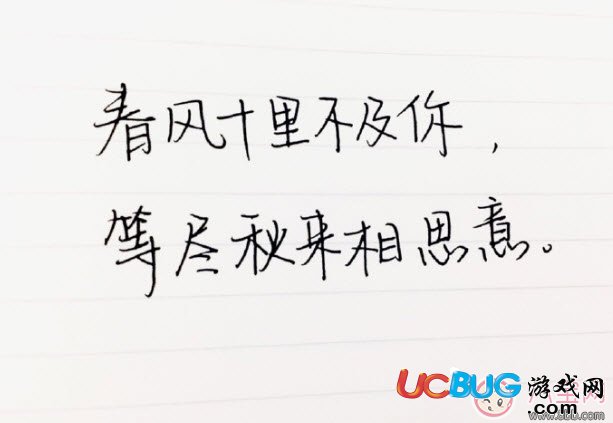 春风十里不及你，
等尽秋来相思意。
UCBUG游戏网